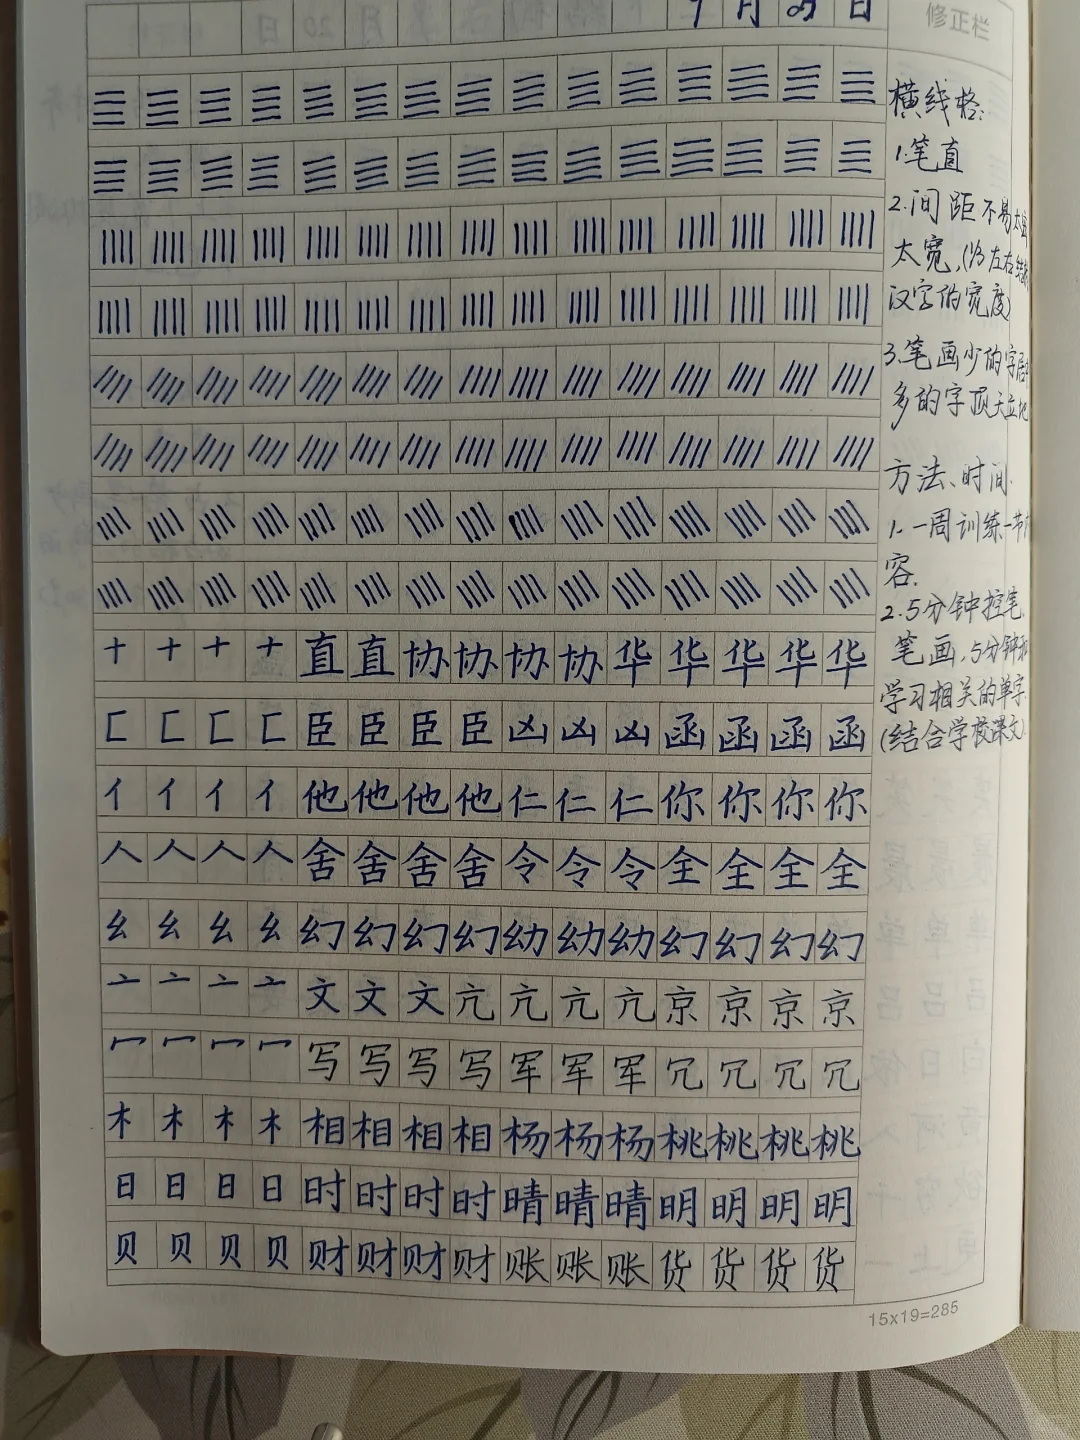 月 日
修正栏
横线格:
1.笔直
2.间距不易太
太宽,(1/3左右结
汉字的宽度)
3.笔画少的字居
多的字顶天立地
方法、时间
1.一周训练一节
容.
2.5分钟控笔,
笔画,5分钟
学习相关的单字.
(结合学校课文)
十 十 十 十 直 直 协 协 协 协 华 华 华 华 华
匚 匚 匚 匚 臣 臣 臣 臣 凶 凶 凶 函 函 函 函
亻 亻 亻 亻 他 他 他 他 仁 仁 仁 你 你 你 你
人 人 人 人 舍 舍 舍 舍 令 令 令 全 全 全 全
幺 幺 幺 幺 幻 幻 幻 幻 幼 幼 幼 幻 幻 幻 幻
亠 亠 亠 亠 文 文 文 亢 亢 亢 亢 京 京 京 京
冖 冖 冖 冖 写 写 写 写 军 军 军 冗 冗 冗 冗
木 木 木 木 相 相 相 相 杨 杨 杨 桃 桃 桃 桃
日 日 日 日 时 时 时 时 晴 晴 晴 明 明 明 明
贝 贝 贝 贝 财 财 财 财 账 账 账 货 货 货 货
15x19=285